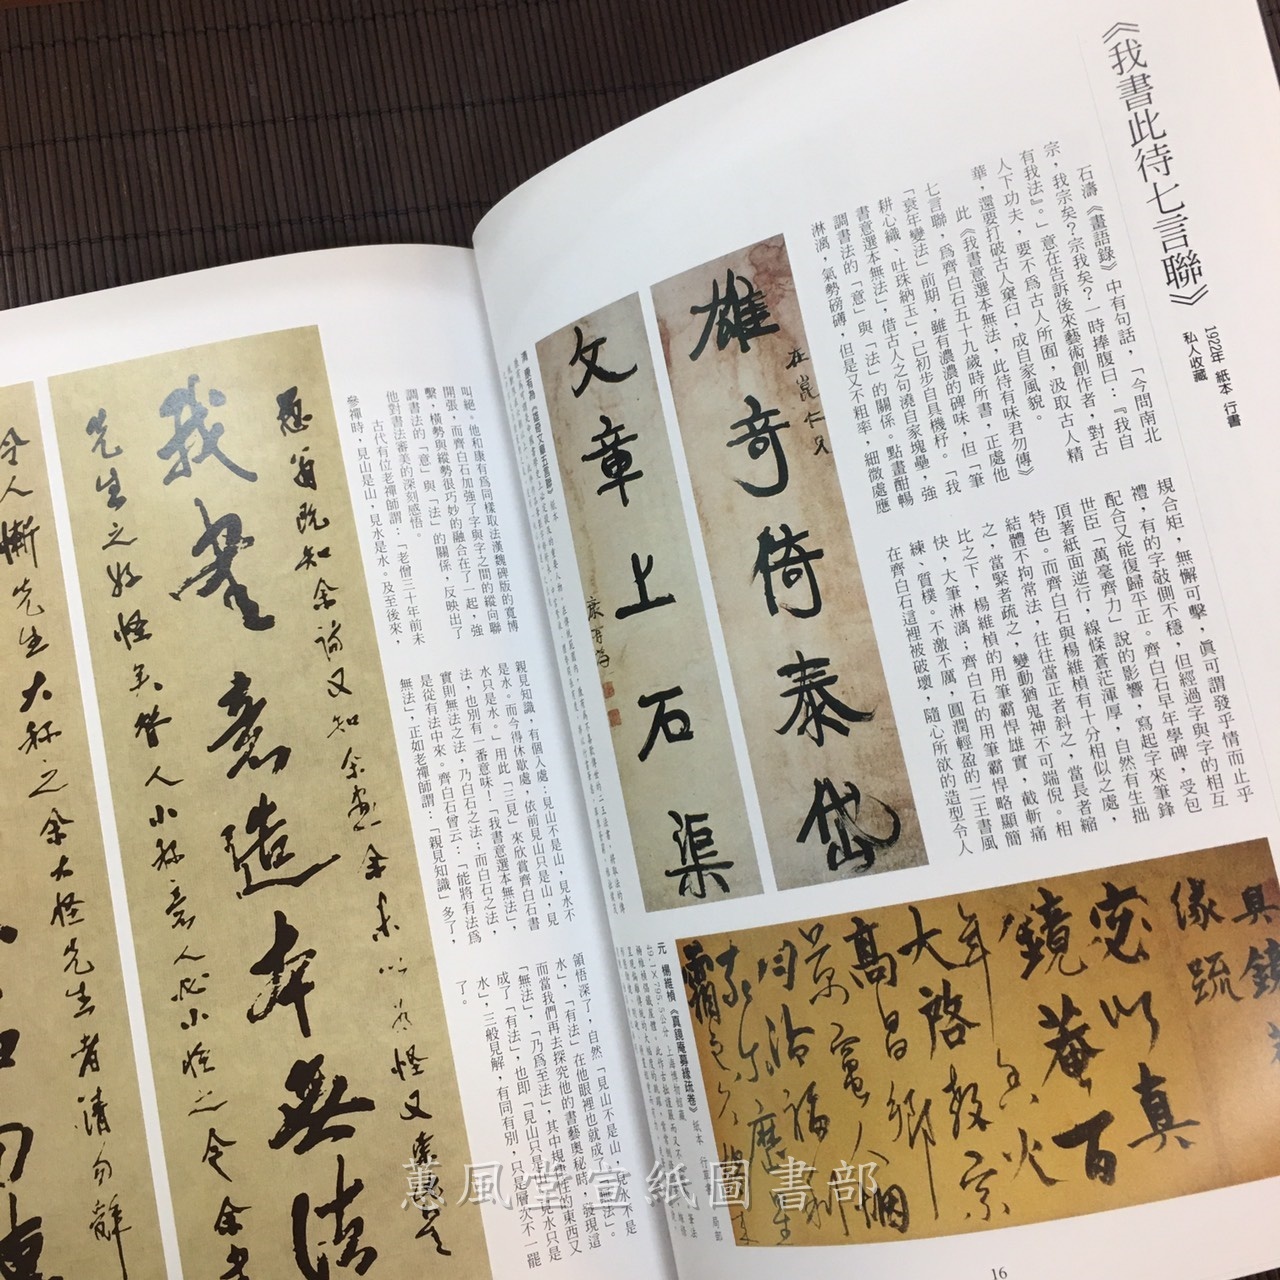 《我書此待七言聯》
1922年 紙本 行書
私人收藏
石濤《畫語錄》中有句話，「今問南北
宗，我宗矣？宗我矣？一時捧腹曰：『我自
有我法』。」意在告訴後來藝術創作者，對古
人下功夫，要不爲古人所囿，汲取古人精
華，還要打破古人窠臼，成自家風貌。
此《我書意選本無法，此待有味君勿傳》
七言聯，爲齊白石五十九歲時所書，正處他
「衰年變法」前期，雖有濃濃的碑味，但「筆
耕心織、吐珠納玉」，已初步自具機杼。「我
書意選本無法」，借古人之句澆自家塊壘，強
調書法的「意」與「法」的關係。點畫酣暢
淋漓，氣勢磅礴，但是又不粗率，細微處應
規合矩，無懈可擊，眞可謂發乎情而止乎
禮，有的字敧側不穩，但經過字與字的相互
配合又能復歸平正。齊白石早年學碑，受包
世臣「萬毫齊力」說的影響，寫起字來筆鋒
頂著紙面逆行，線條蒼茫渾厚，自然有生拙
特色。而齊白石與楊維楨有十分相似之處，
結體不拘常法，往往當正者斜之，當長者縮
之，當緊者疏之，變動猶鬼神不可端倪。相
比之下，楊維楨的用筆霸悍雄實，截斬痛
快，大筆淋漓；齊白石的用筆霸悍略顯簡
練、質樸。不激不厲，圓潤輕盈的二王書風
在齊白石這裡被破壞，隨心所欲的造型令人
叫絕。他和康有爲同樣取法漢魏碑版的寬博
開張，而齊白石加強了字與字之間的縱向聯
繫，橫勢與縱勢很巧妙的融合在了一起，強
調書法的「意」與「法」的關係，反映出了
他對書法審美的深刻感悟。
古代有位老禪師謂：「老僧三十年前未
參禪時，見山是山，見水是水。及至後來，
親見知識，有個入處：見山不是山，見水不
是水。而今得休歇處，依前見山只是山，見
水只是水。」用此「三見」來欣賞齊白石書
法，也別有一番意味！「我書意選本無法」，
實則無法之法，乃白石之法；而白石之法，
是從有法中來。齊白石曾云：「能將有法爲
無法」，正如老禪師謂：「親見知識」多了，
領悟深了，自然「見山不是山，見水不是
水」，「有法」在他眼裡也就成了「無法」。
而當我們再去探究他的書藝奧秘時，發現這
「無法」，「乃爲至法」，其中規律性的東西又
成了「有法」，也即「見山只是山，見水只是
水」，三般見解，有同有別，只是層次不一罷
了。
雄奇倚泰岱
在崑仁兄
文章上石渠
康有爲
清 康有爲《雄奇文章五言聯》 紙本
元 楊維楨《真鏡庵募緣疏卷》 紙本
緣疏
宓以真
鏡菴百
大啓
高昌鄉
我書意造本無法
愚翁既知余詩又知余畫余未以爲怪又索
先生之好怪矣昔人小稱意人必小怪之今余書
令人慚先生大称之余大怪先生者請勿辭
蕙風堂宣紙圖書部
16